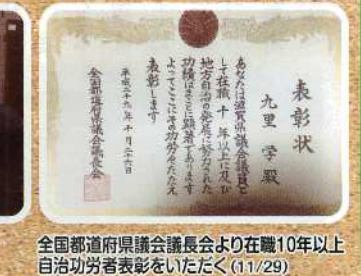 表彰状
九里 学 殿
あなたは滋賀県議会議員と
して在職十年以上に及び
地方自治の発展に努力された
功績はまことに顕著であります
よってここにその功労をたたえ
表彰します
平成二十九年十月二十六日
全国都道府県議会議長会
全国都道府県議会議長会より在職10年以上
自治功労者表彰をいただく(11/29)